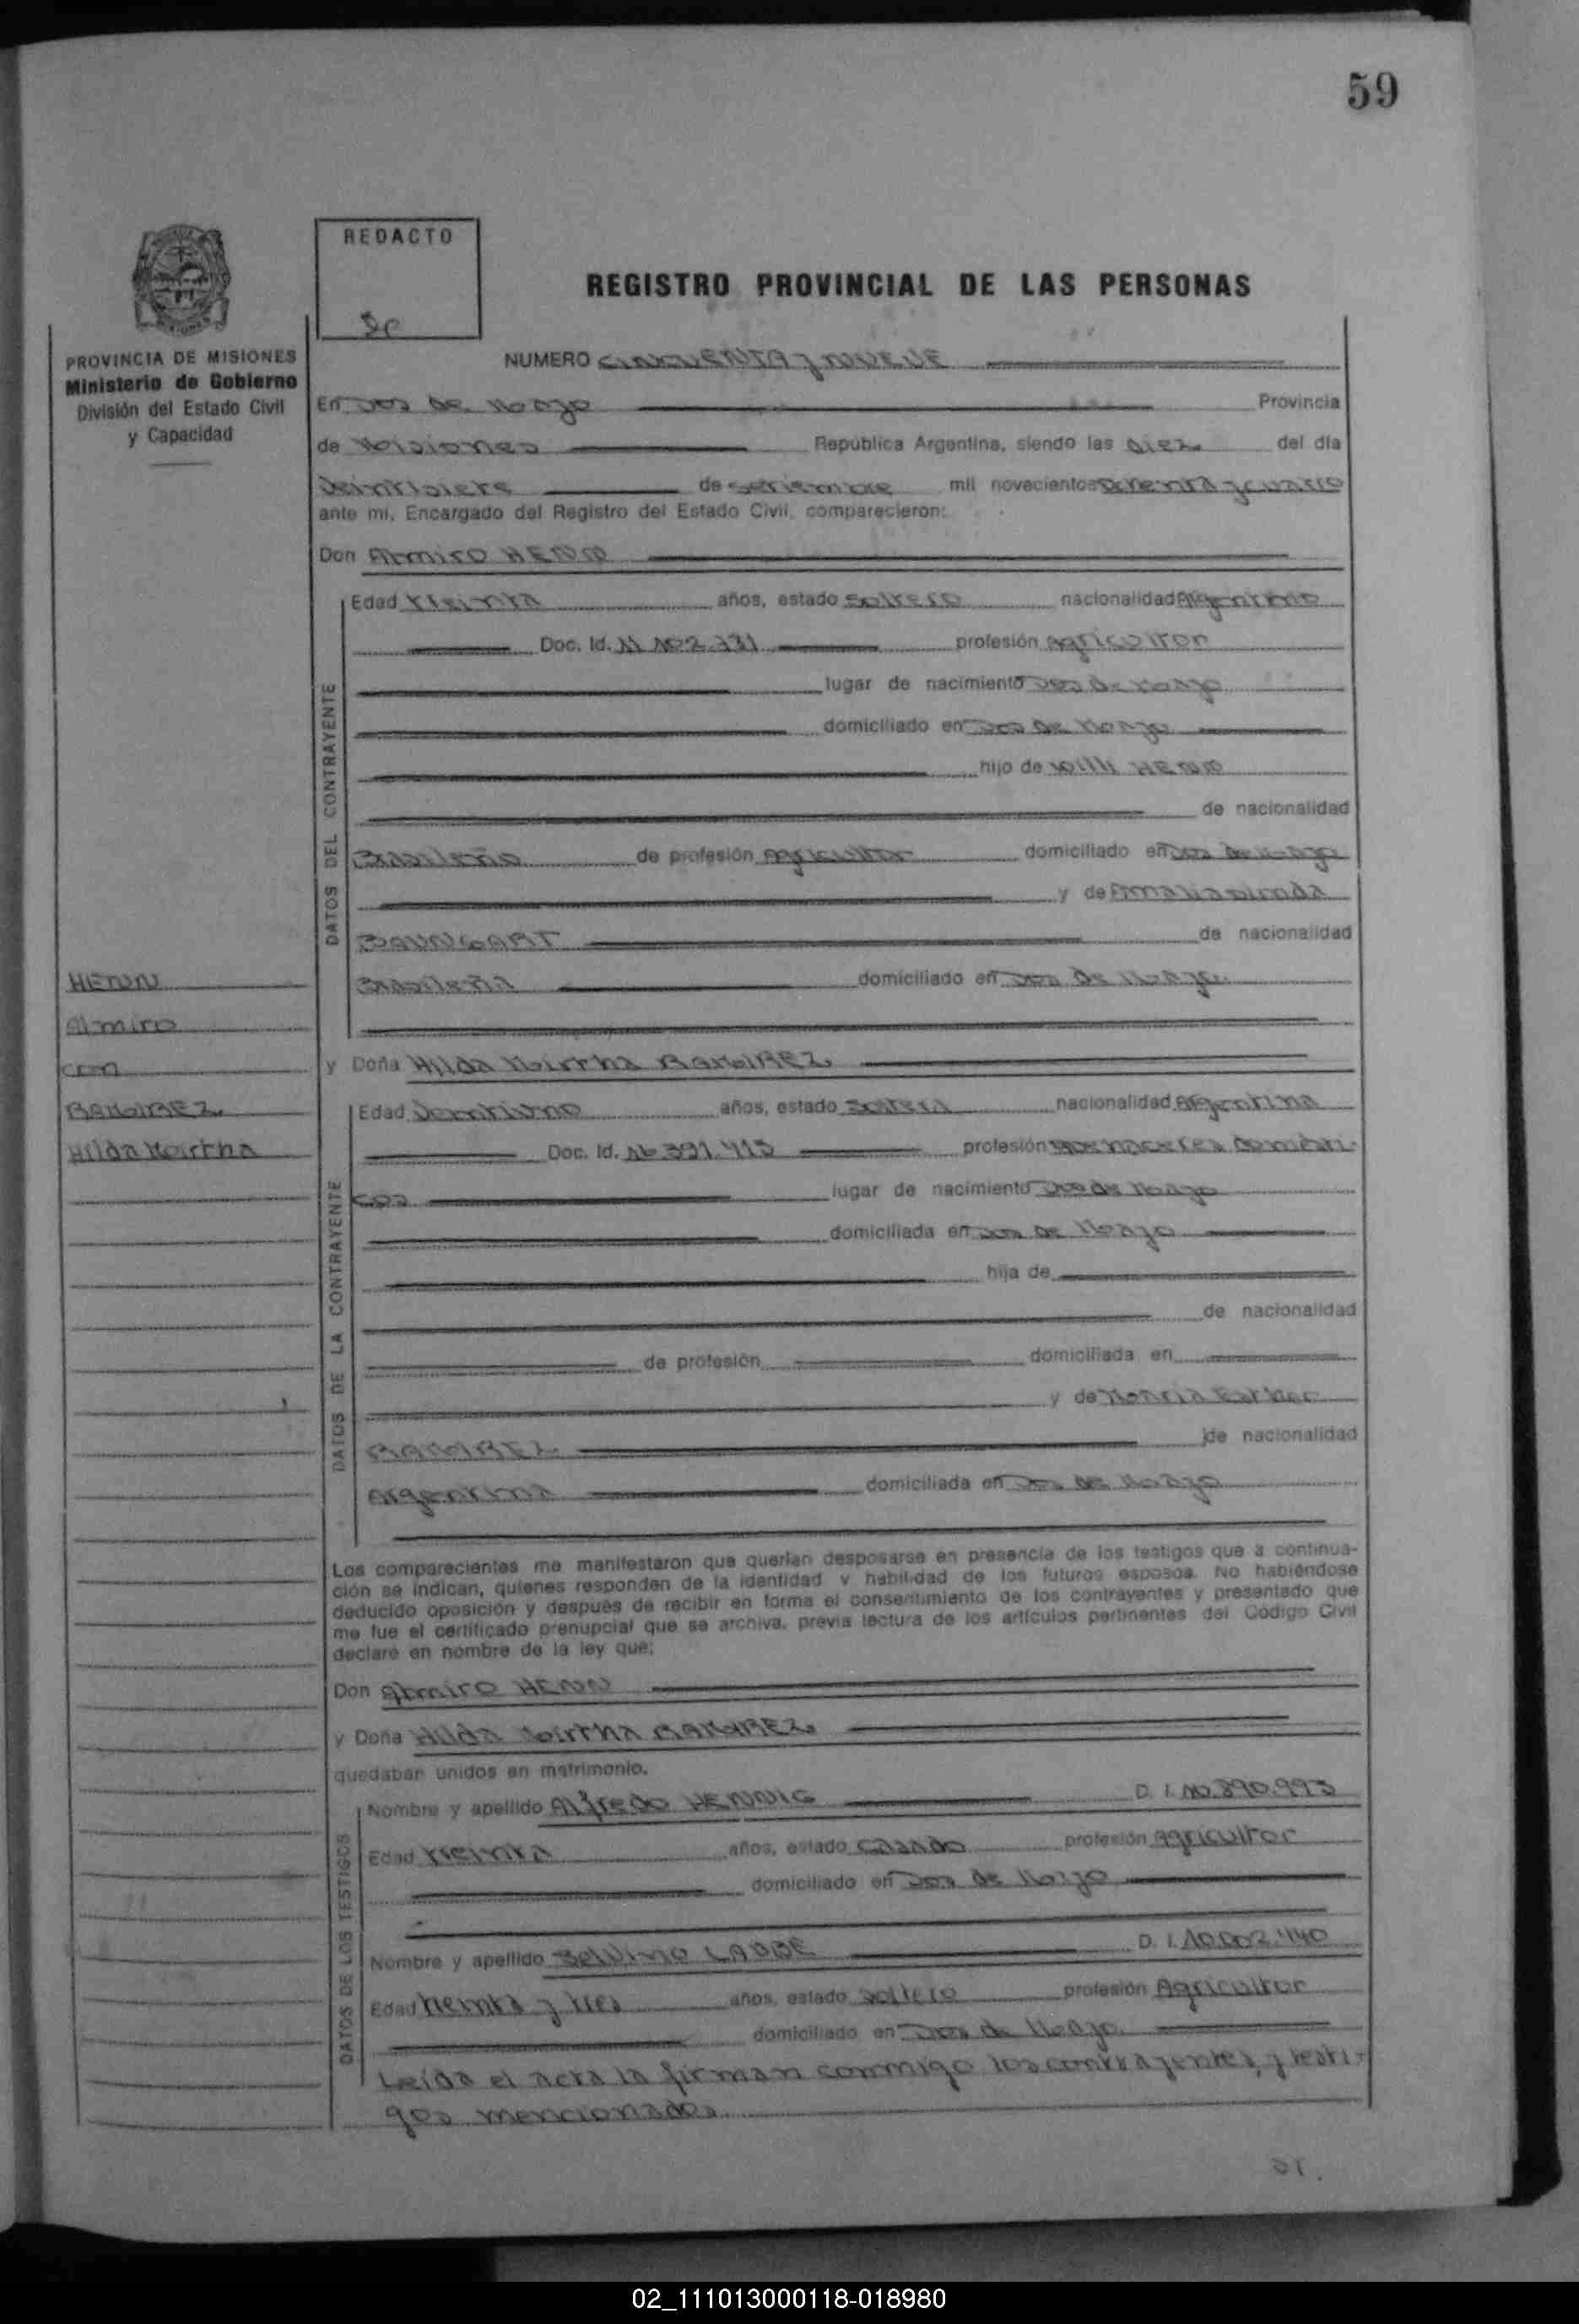 59
REDACTO
REGISTRO PROVINCIAL DE LAS PERSONAS
PROVINCIA DE MISIONES
Ministerio de Gobierno
División del Estado Civil
y Capacidad
NUMERO CINCUENTA y NUEVE
En Dos de Mayo Provincia
de Misiones República Argentina, siendo las diez del día
Veintisiete de Setiembre mil novecientos setenta y cuatro
ante mi, Encargado del Registro del Estado Civil, comparecieron:
Don Almiro HENN
DATOS DEL CONTRAYENTE
Edad treinta años, estado soltero nacionalidad Argentino
Doc. Id. profesión agricultor
lugar de nacimiento Dos de Mayo
domiciliado en Dos de Mayo
hijo de Willi HENN
de nacionalidad
Brasileño de profesión agricultor domiciliado en Dos de Mayo
y de
BAUNGART de nacionalidad
Brasileña domiciliado en Dos de Mayo
HENN
Almiro
con
RAMIREZ
Hilda Mirtha
y Doña Hilda Mirtha RAMIREZ
DATOS DE LA CONTRAYENTE
Edad Veintiuno años, estado Soltera nacionalidad Argentina
Doc. Id. profesión quehaceres domésti-
cos lugar de nacimiento Dos de Mayo
domiciliada en Dos de Mayo
hija de
de nacionalidad
de profesión domiciliada en
y de María Esther
RAMIREZ de nacionalidad
Argentina domiciliada en Dos de Mayo
Los comparecientes me manifestaron que querían desposarse en presencia de los testigos que a continua-
ción se indican, quienes responden de la identidad y habilidad de los futuros esposos. No habiéndose
deducido oposición y después de recibir en forma el consentimiento de los contrayentes y presentado que
me fue el certificado prenupcial que se archiva, previa lectura de los artículos pertinentes del Código Civil
declaré en nombre de la ley que:
Don Almiro HENN
y Doña Hilda Mirtha RAMIREZ
quedaban unidos en matrimonio.
DATOS DE LOS TESTIGOS
Nombre y apellido Alfredo HENNIG D. I. 10.890.993
Edad treinta años, estado casado profesión agricultor
domiciliado en Dos de Mayo
Nombre y apellido Selvino LAUBE D. I. 10.002.440
Edad treinta y tres años, estado soltero profesión Agricultor
domiciliado en Dos de Mayo
Leída el acta la firman conmigo los contrayentes y testi-
gos mencionados
02_111013000118-018980